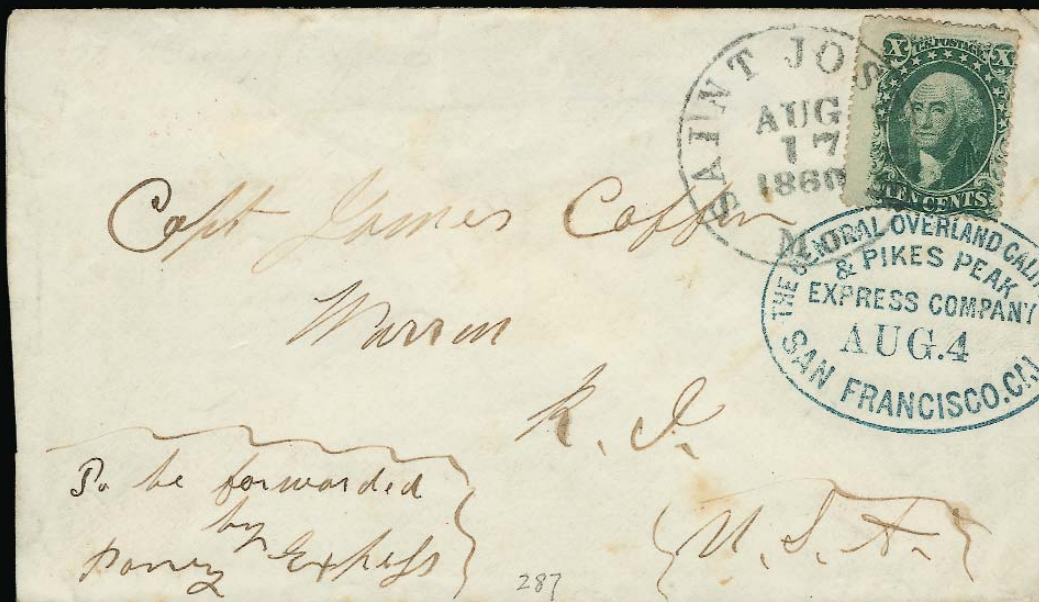 SAINT JOS
AUG
17
1860
MO
X U.S. POSTAGE X
TEN CENTS
THE CENTRAL OVERLAND CALIF
& PIKES PEAK
EXPRESS COMPANY
AUG.4
SAN FRANCISCO.CAL
Capt James Coffin
Warren
R. I.
To be forwarded
by
Poney Express
U. S. A.
287